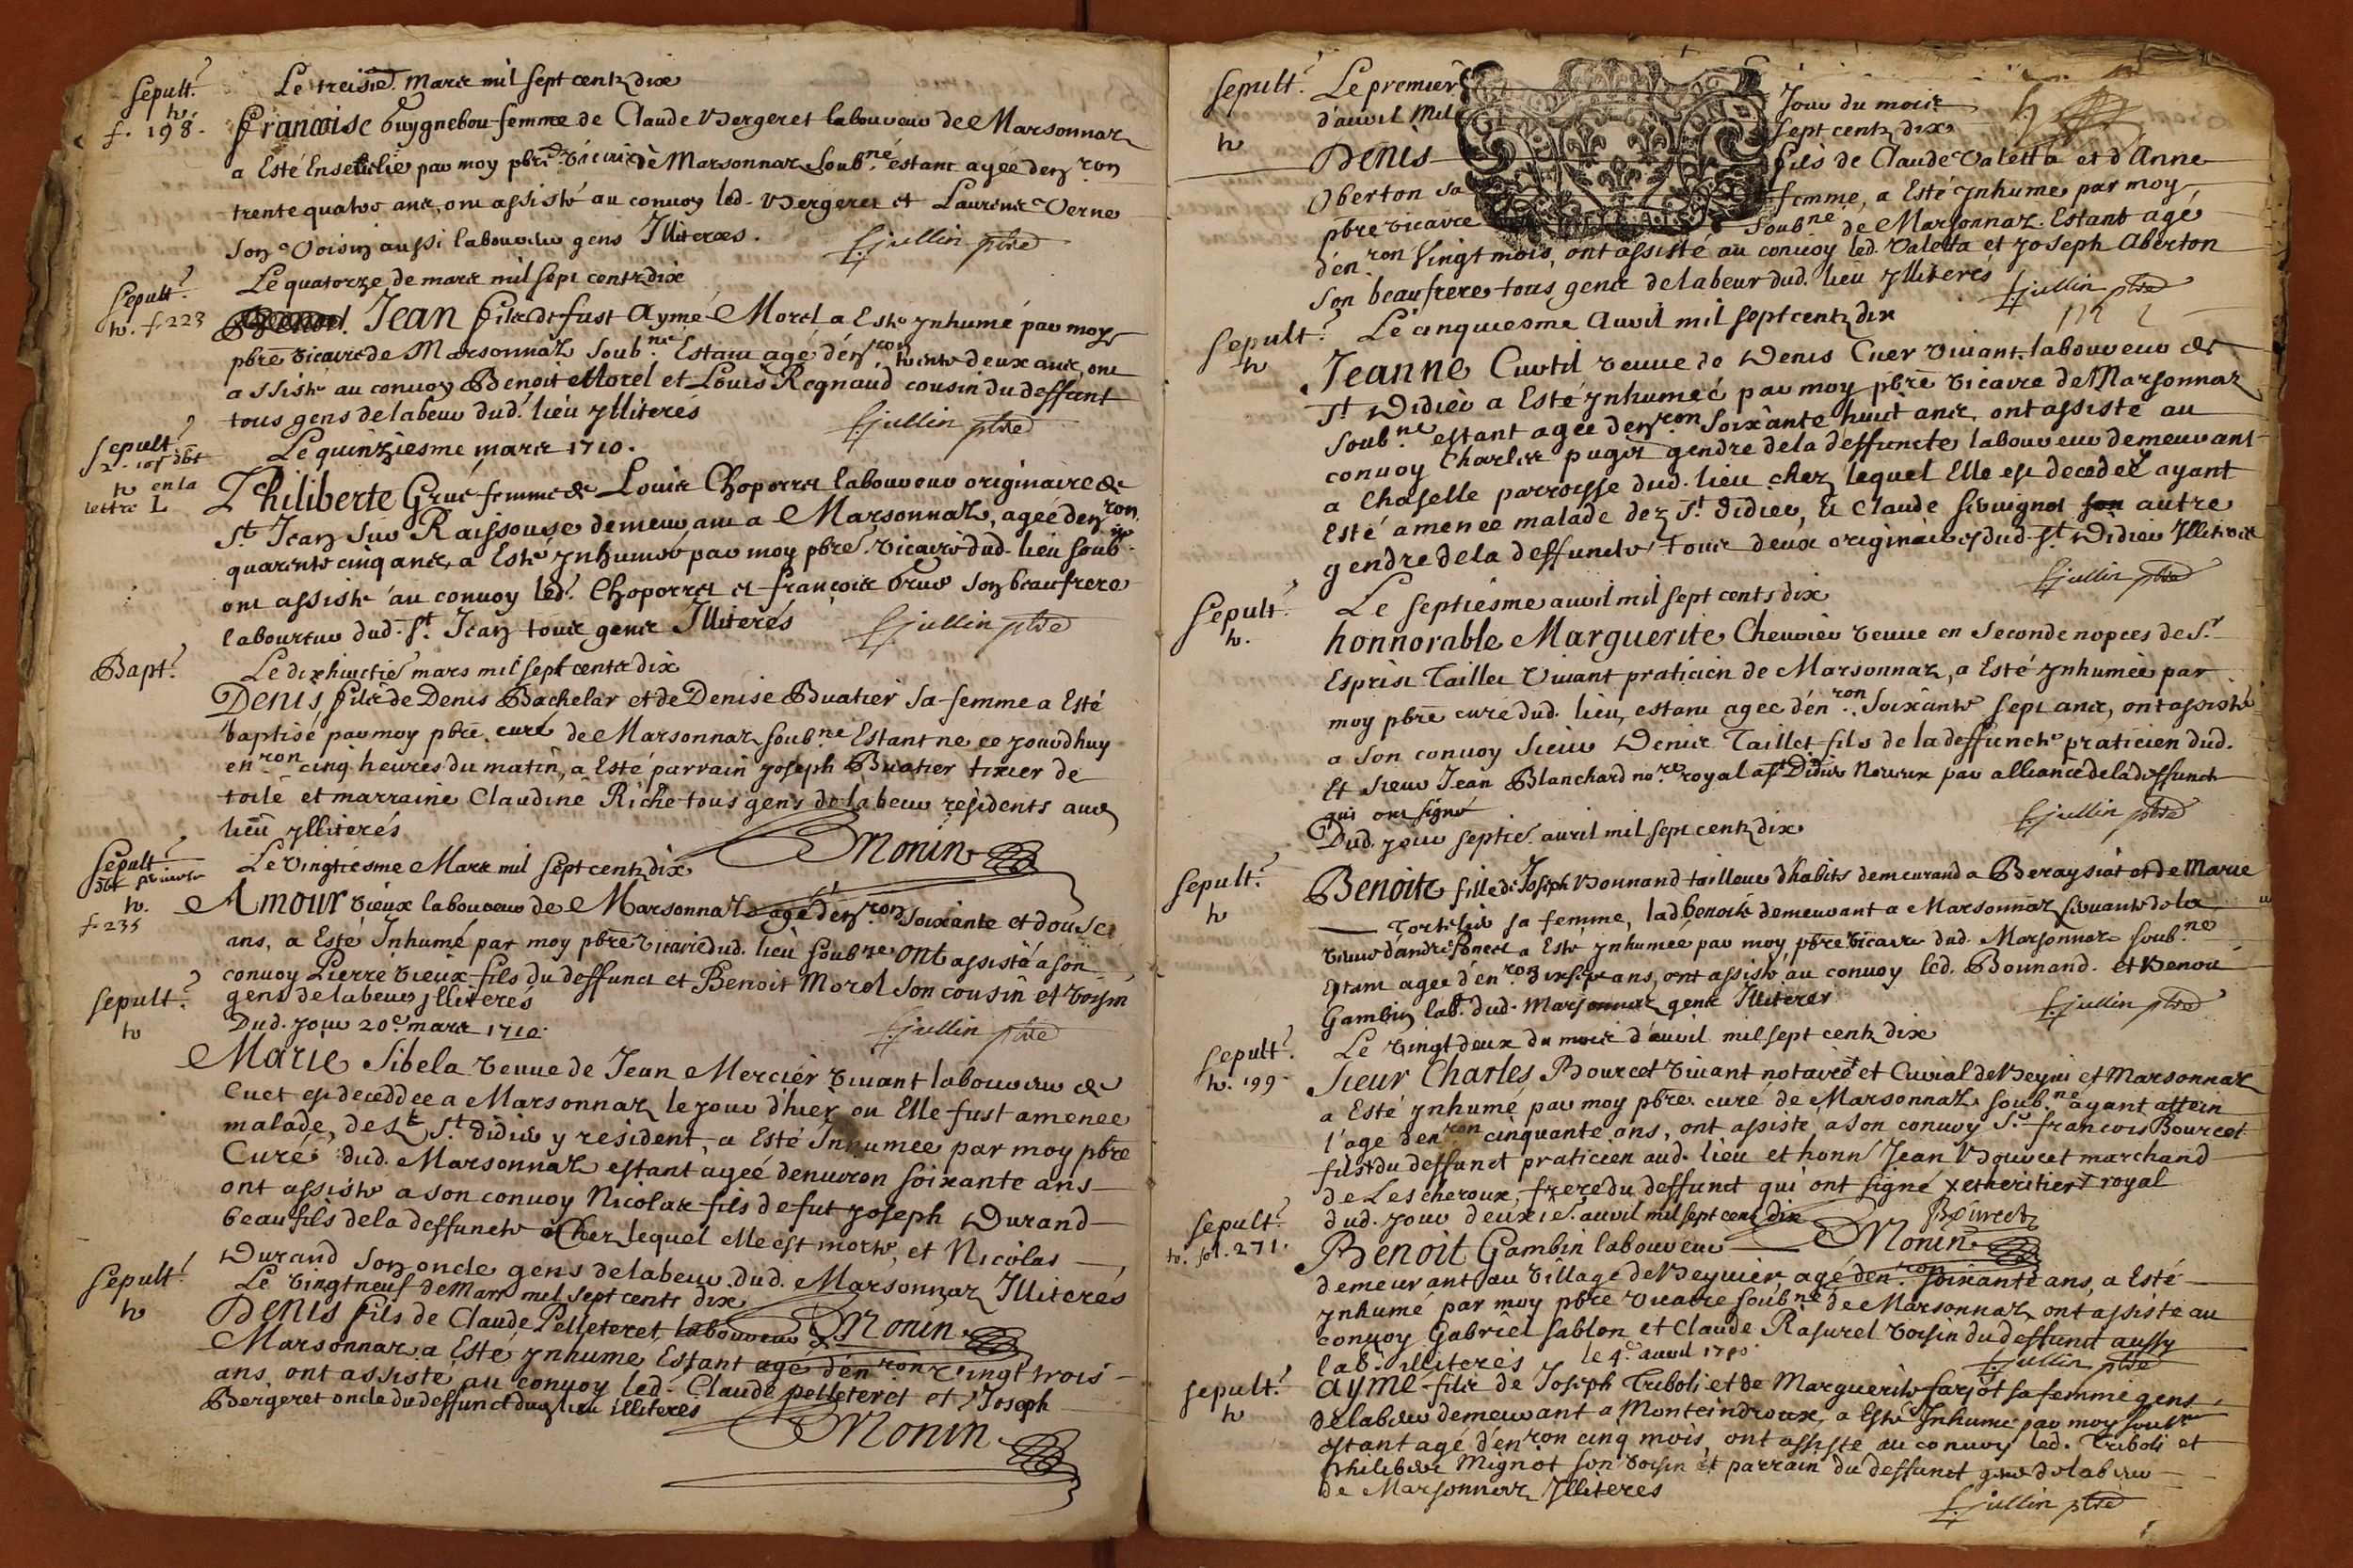 Sepult.
h.
f. 198.
Le treisie. Mars mil sept cents dix
Françoise Guygnebou femme de Claude Vergeret laboureur de Marsonnaz
a Esté Ensevelie par moy pbre vicaire de Marsonnaz soub.né estant agée den ron
trente quatre ans, ont assisté au convoy led. Vergeret et Laurent Verne
son Voisin aussi laboureur gens Illiteres.
F jullin pbre
Sepult.
h. f. 223
Le quatorze de mars mil sept cents dix
Jean fils de fust Aymé Morel a Esté ynhumé par moy
pbre vicaire de Marsonnaz soub.né Estant agé den ron trente deux ans, ont
assisté au convoy Benoit Morel et Louis Regnaud cousin du deffunt
tous gens de labeur dud. lieu ylliterés
F jullin pbre
Sepult.
h en la
lettre L
Le quinziesme mars 1710.
Philiberte Grué femme de Louis Choporret laboureur originaire de
St. Jean sur Raissouse demeurant a Marsonnaz, agée den ron
quarente cinq ans, a Esté ynhumée par moy pbre. Vicaire dud. lieu soub.né
ont assisté au convoy led. Choporret et françois Grué son beaufrere
laboureur dud. St. Jean tous gens Illiterés
F jullin pbre
Bapt.
Le dixhuictie mars mil sept cents dix
Denis fils de Denis Bachelar et de Denise Buatier sa femme a Esté
baptisé par moy pbre. curé de Marsonnaz soub.né Estant né ce jourdhuy
en ron cinq heures du matin, a Esté parrain Joseph Buatier tixier de
toile et marraine Claudine Riche tous gens de labeur residents aud
lieu ylliterés
Monin
Sepult.
h.
f. 235
Le vingtiesme Mars mil sept cents dix
Amour vieux laboureur de Marsonnaz agé den ron soixante et douse
ans, a Esté Inhumé par moy pbre vicaire dud. lieu soub ne ont assisté a son
convoy Pierre vieux fils du deffunct et Benoit Morel son cousin et voisin
gens de labeur ylliterés
F jullin pbre
Sepult.
h
Dud. jour 20e mars 1710.
Marie Sibela veuve de Jean Mercier vivant laboureur de
Cuet est deceddee a Marsonnaz le jour d'hier ou Elle fust amenee
malade, de St didier y resident, a Esté Inhumee par moy pbre
Curé dud. Marsonnaz estant agée denviron soixante ans
ont assisté a son convoy Nicolas fils de fut Joseph Durand
beau fils de la deffuncte Chez lequel elle est morte, et Nicolas
Durand son oncle gens de labeur dud. Marsonnaz Illiterés
Monin
Sepult.
h
Le vingt neuf de Mars mil sept cents dix
Denis fils de Claude Pelleteret laboureur de
Marsonnaz a Esté ynhumé Estant agé den ron vingt trois
ans, ont assisté au convoy led. Claude pelleteret et Joseph
Bergeret oncle du deffunct dud lieu illiteres
Monin
Sepult.
h
Le premier Jour du mois
d'avril Mil sept cents dix
Denis fils de Claude Valetta et d'Anne
Oberton sa femme, a Esté ynhumé par moy
pbre vicaire soub ne de Marsonnaz Estant agé
d'en ron vingt mois, ont assisté au convoy led. Valetta et Joseph Aberton
son beaufrere tous gens de labeur dud. lieu ylliterés
F jullin pbre
Sepult.
h
Le cinquiesme Avril mil sept cents dix
Jeanne Curtil veuve de Denis Cuer vivant laboureur de
St Didier a Esté ynhumeé par moy pbre vicaire de Marsonnaz
soub.né estant agée den ron soixante huit ans, ont assisté au
convoy Charles puget gendre de la deffuncte laboureur demeurant
a Chaselle parroisse dud. lieu chez lequel Elle est decedeé y ayant
Esté amenee malade dez St. Didier, et Claude autre
gendre de la deffuncte tous deux originaires dud. St. Didier Illiteres
F jullin pbre
Sepult.
h.
Le septiesme avril mil sept cents dix
honnorable Marguerite Chevrier veuve en seconde nopces de Sr
Esprit Taillet vivant praticien de Marsonnaz, a Esté ynhumeé par
moy pbre curé dud. lieu, estant agee d'en ron soixante sept ans, ont assisté
a son convoy sieur Denis Taillet fils de la deffuncte praticien dud.
Et sieur Jean Blanchard no.re royal a St Didier Neveux par alliance de la deffuncte
qui ont signé
F jullin pbre
Sepult.
h
Dud. jour septie. avril mil sept cents dix
Benoite fille de Joseph Bonnand tailleur d'habits demeurand a Beraysiat et de Marie
sa femme, lad benoite demeurant a Marsonnaz servante de la
a Esté ynhumée par moy pbre vicaire dud. Marsonnaz soub.né
Estant agée d'en ron ans, ont assisté au convoy led. Bonnand. et Benoit
Gambin lab.r dud. Marsonnaz gens Illiterés
F jullin pbre
Sepult.
h. 199
Le vingt deux du mois d'avril mil sept cents dix
Sieur Charles Bourcet vivant notaire et Curial de Beyvi et Marsonnaz
a Esté ynhumé par moy pbre curé de Marsonnaz soub.né ayant attein
l'age den ron cinquante ans, ont assisté a son convoy Sr. francois Bourcet
fils du deffunct praticien aud. lieu et honn Jean Bourcet marchand
de Lescheroux, frere du deffunct qui ont signé x et heritier x royal
Bourcet
Monin
Sepult.
h. fol. 271.
dud. jour deuxie. avril mil sept cens dix
Benoit Gambin laboureur
demeurant au village de Beyvier agé den ron soixante ans, a Esté
ynhumé par moy pbre vicaire soub ne de Marsonnaz, ont assisté au
convoy Gabriel Sablon et Claude Rasurel voisin du deffunct aussy
lab.r illiterés
F jullin pbre
Sepult.
h
le 4e. avril 1710
Aymé fils de Joseph Triboli et de Marguerite farjot sa femme gens
de labeur demeurant a Monteindroux, a Esté Inhumé par moy soub ne
estant agé d'en ron cinq mois, ont assisté au convoy led. Triboli et
philibert Mignot son voisin et parrain du deffunct gens de labeur
de Marsonnaz Ylliteres
F jullin pbre